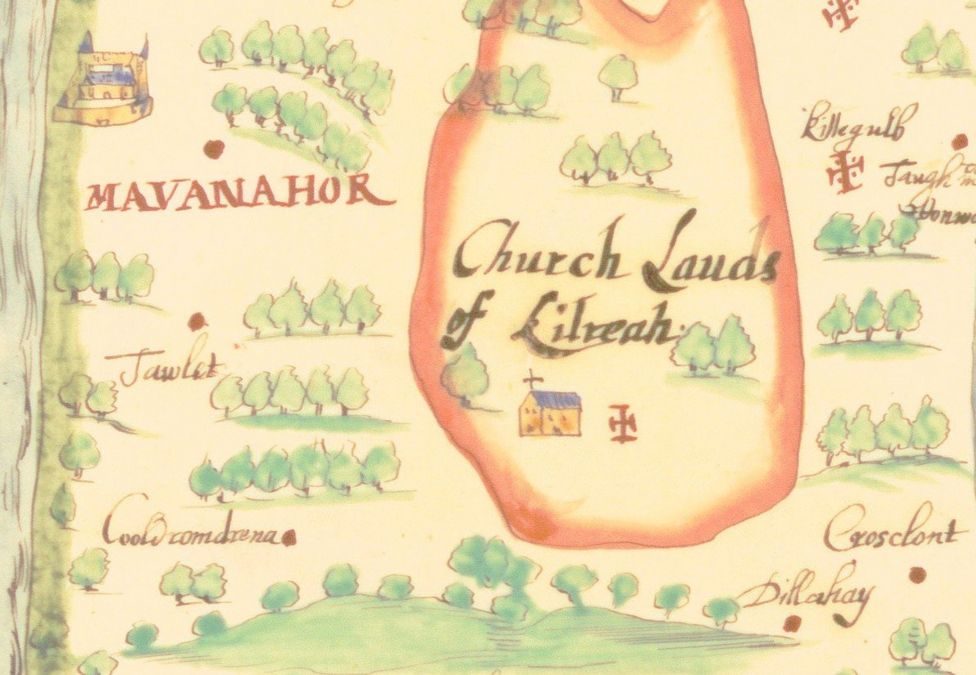 Killegulb
MAVANAHOR
Church Lands
of Kilreah.
Tawlet
Cooldromdrena
Crosclont
Dillahay